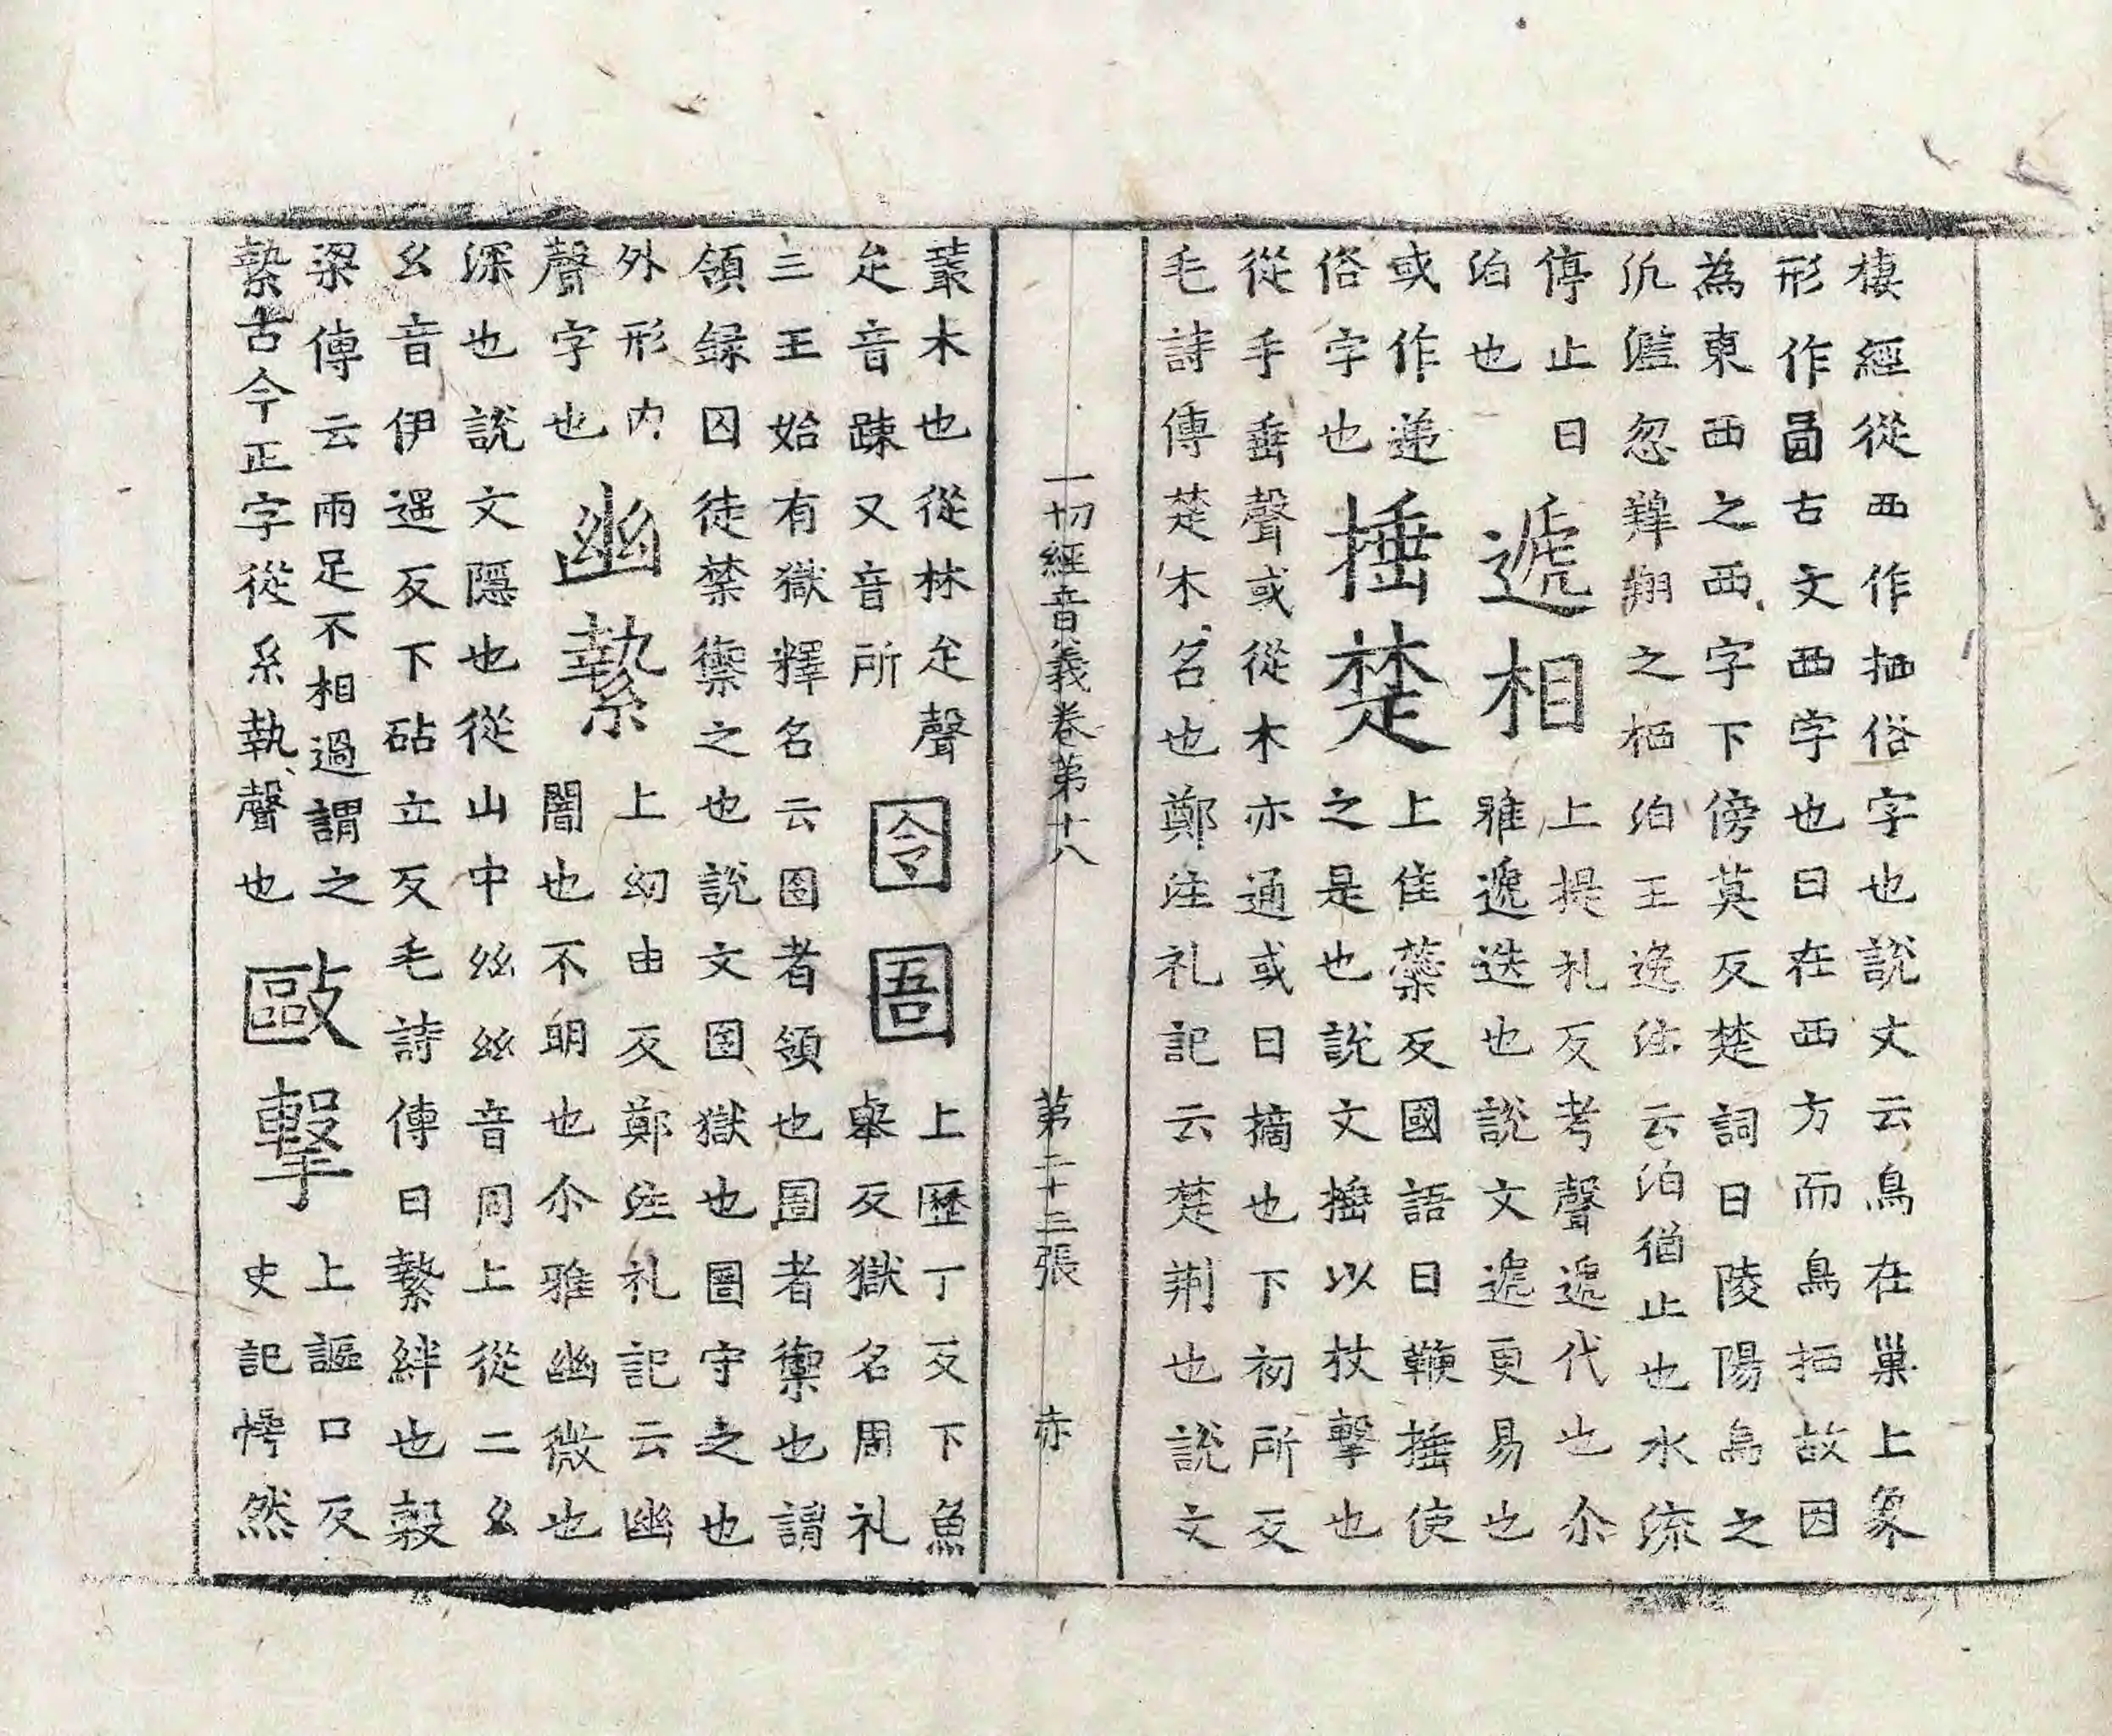 棲經從西作栖俗字也說文云鳥在巢上象
形作𠧧古文西字也曰在西方而鳥栖故因
為東西之西字下傍莫反楚詞曰陵陽烏之
氾濫忽翱翔之栖泊王逸注云泊猶止也水流
停止曰
泊也
遞相
上提礼反考聲遞代也尒
雅遞迭也說文遞更易也
或作递
俗字也
捶楚
上隹蘂反國語曰鞭捶使
之是也說文捶以杖擊也
從手垂聲或從木亦通或曰摘也下初所反
毛詩傳楚木名也鄭注礼記云楚荆也說文
一切經音義卷第十八 第二十三張 赤
叢木也從林疋聲
疋音踈又音所
囹圄
上歷丁反下魚
舉反獄名周礼
三王始有獄釋名云囹者領也圄者禦也謂
領録囚徒禁禦之也說文囹獄也圄守之也
外形內
聲字也
幽縶
上幼由反鄭注礼記云幽
闇也不明也尒雅幽微也
深也說文隱也從山中𢆶𢆶音同上從二幺
幺音伊遥反下砧立反毛詩傳曰縶絆也穀
梁傳云兩足不相過謂之
縶古今正字從糸執聲也
毆擊
上謳口反
史記愕然